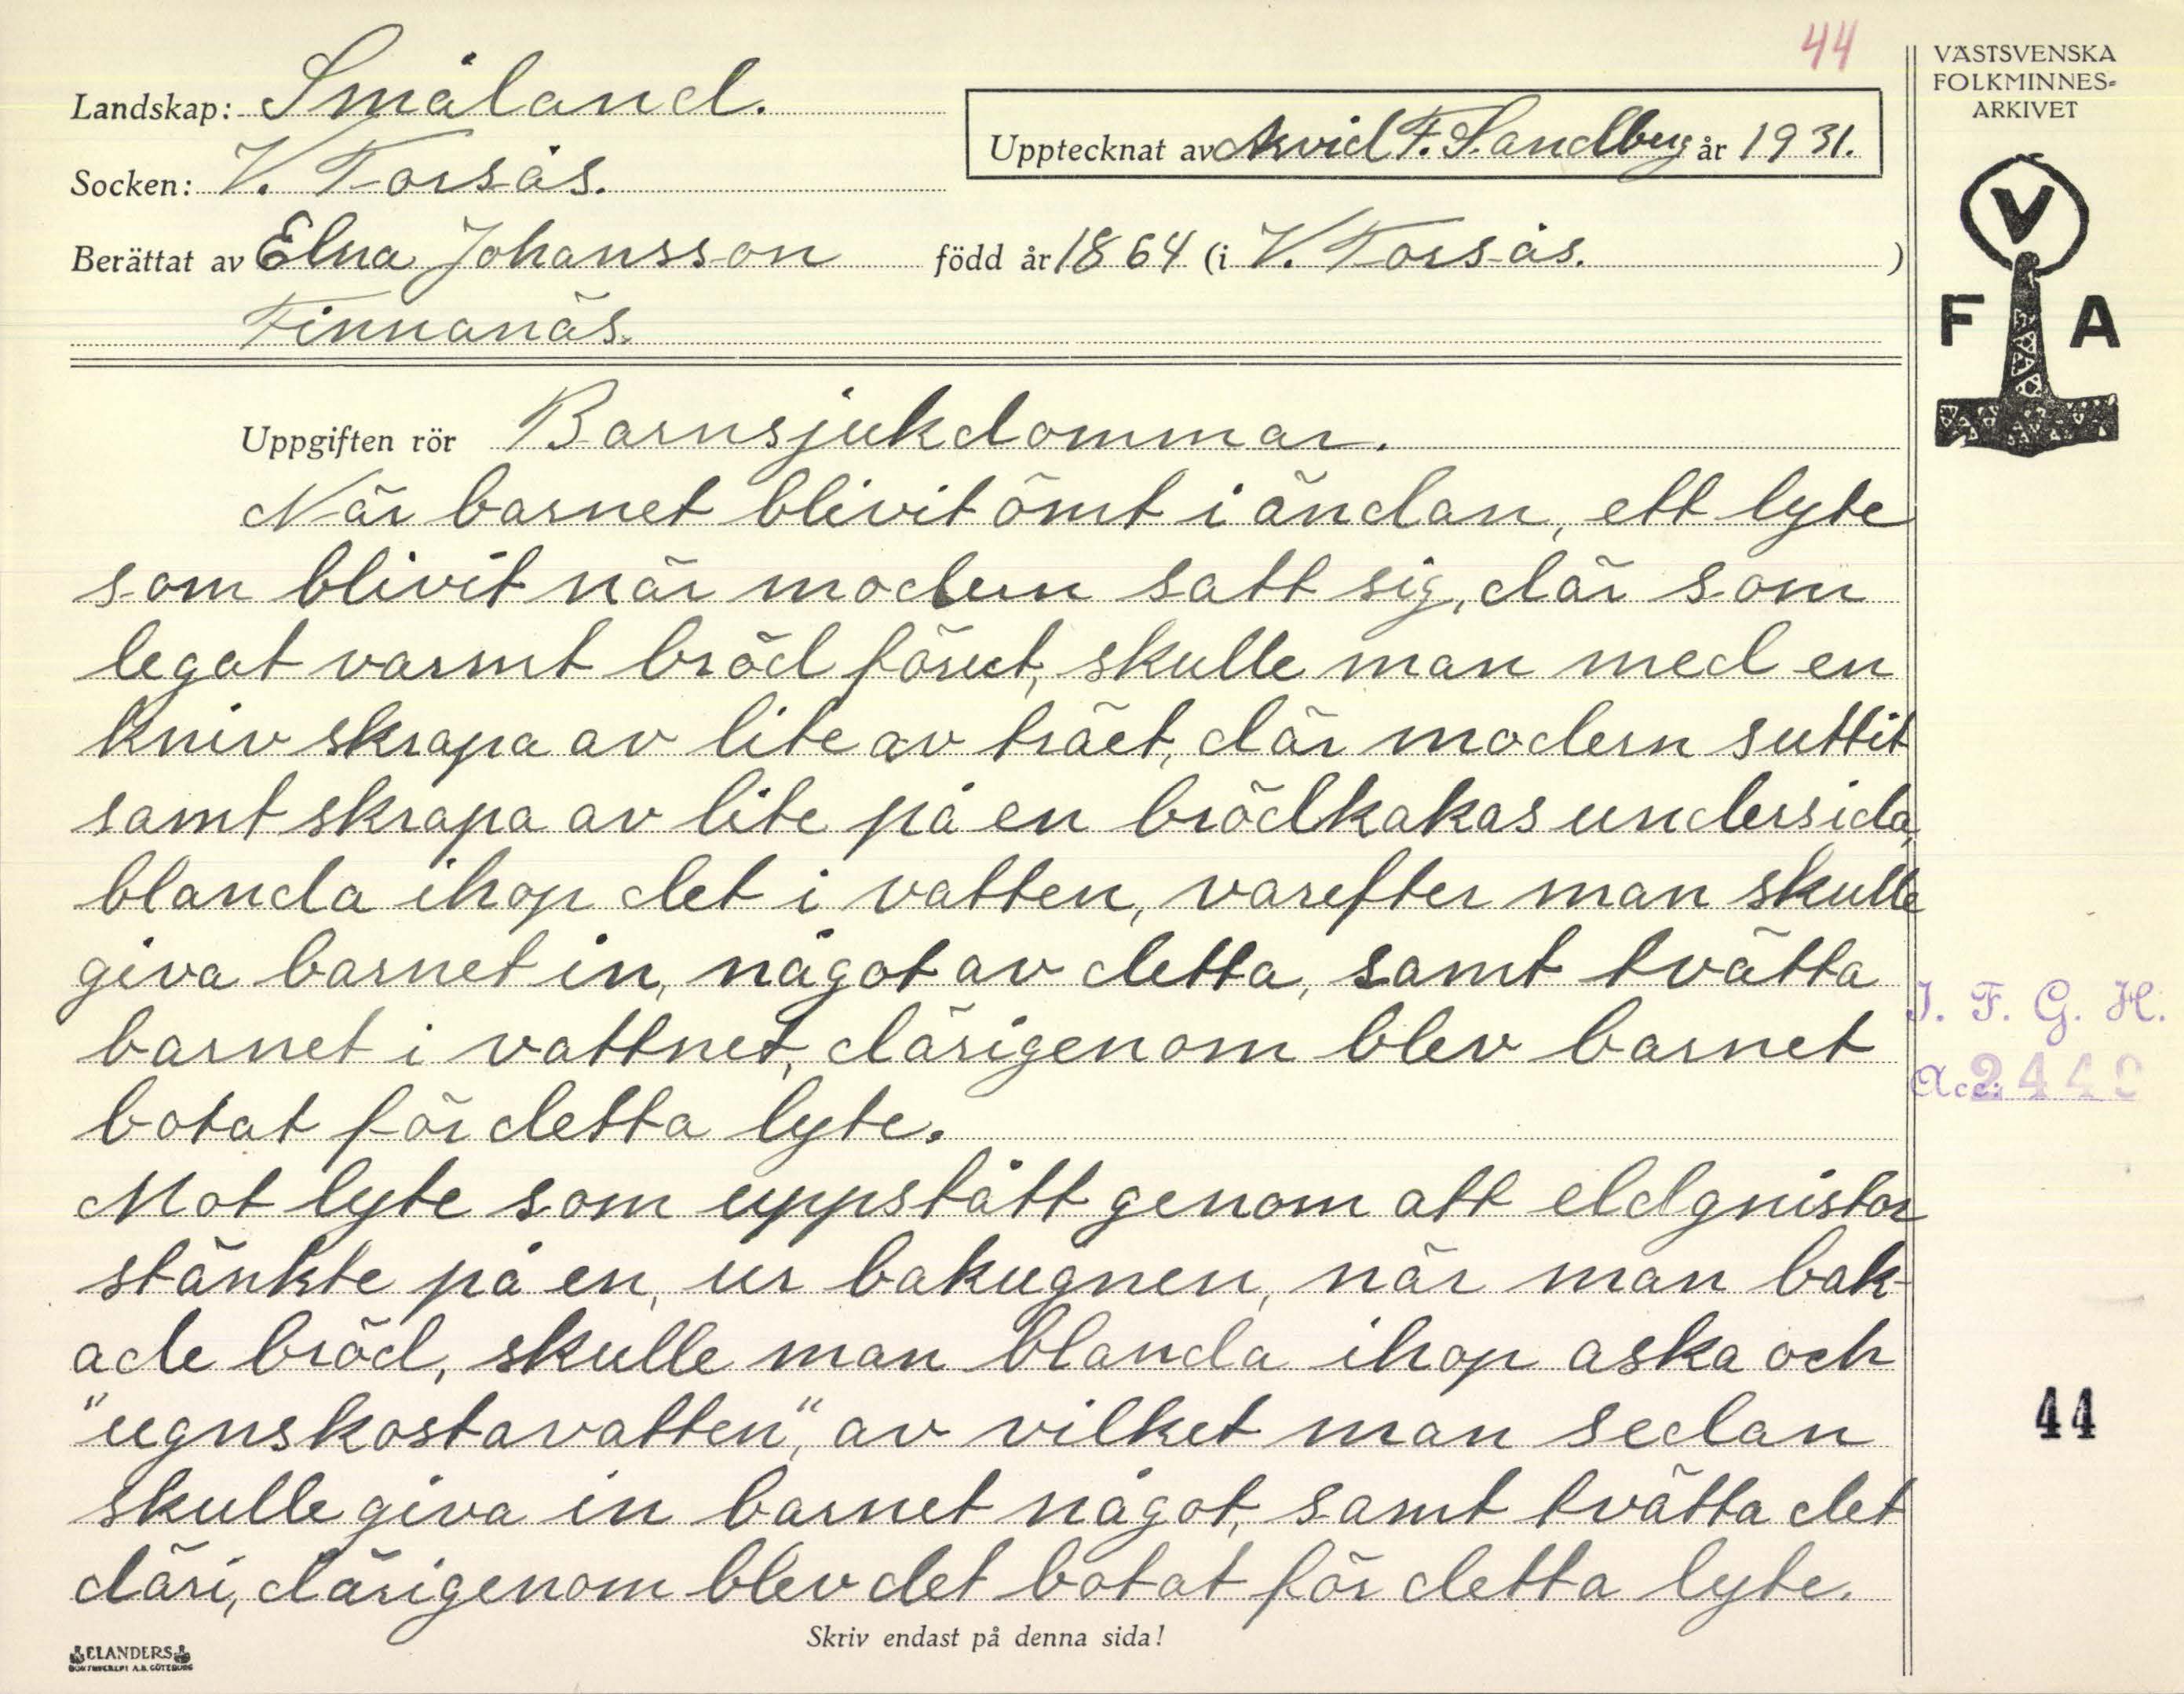 44
VÄSTSVENSKA
FOLKMINNES-
ARKIVET
Landskap: Småland.
Upptecknat av Arvid F. Sandberg år 1931.
Socken: V. Torsås.
Berättat av Elna Johansson född år 1864 (i V. Torsås. )
Finnanäs.
V
F A
Uppgiften rör Barnsjukdommar.
När barnet blivit ömt i ändan, ett lyte
som blivit när modern satt sig, där som
legat varmt bröd förut, skulle man med en
kniv skrapa av lite av träet, där modern suttit
samt skrapa av lite på en brödkakas undersida,
blanda ihop det i vatten, varefter man skulle
giva barnet in, något av detta, samt tvätta
barnet i vattnet, därigenom blev barnet
botat för detta lyte.
Mot lyte som uppstått genom att eldgnistor
stänkte på en, ur bakugnen, när man bak-
ade bröd, skulle man blanda ihop aska och
"ugnskostavatten", av vilket man sedan
skulle giva in barnet något, samt tvätta det
däri, därigenom blev det botat för detta lyte.
I. F. G. H.
Acc: 2440
44
Skriv endast på denna sida!
ELANDERS
BOKTRYCKERI A.B. GÖTEBORG